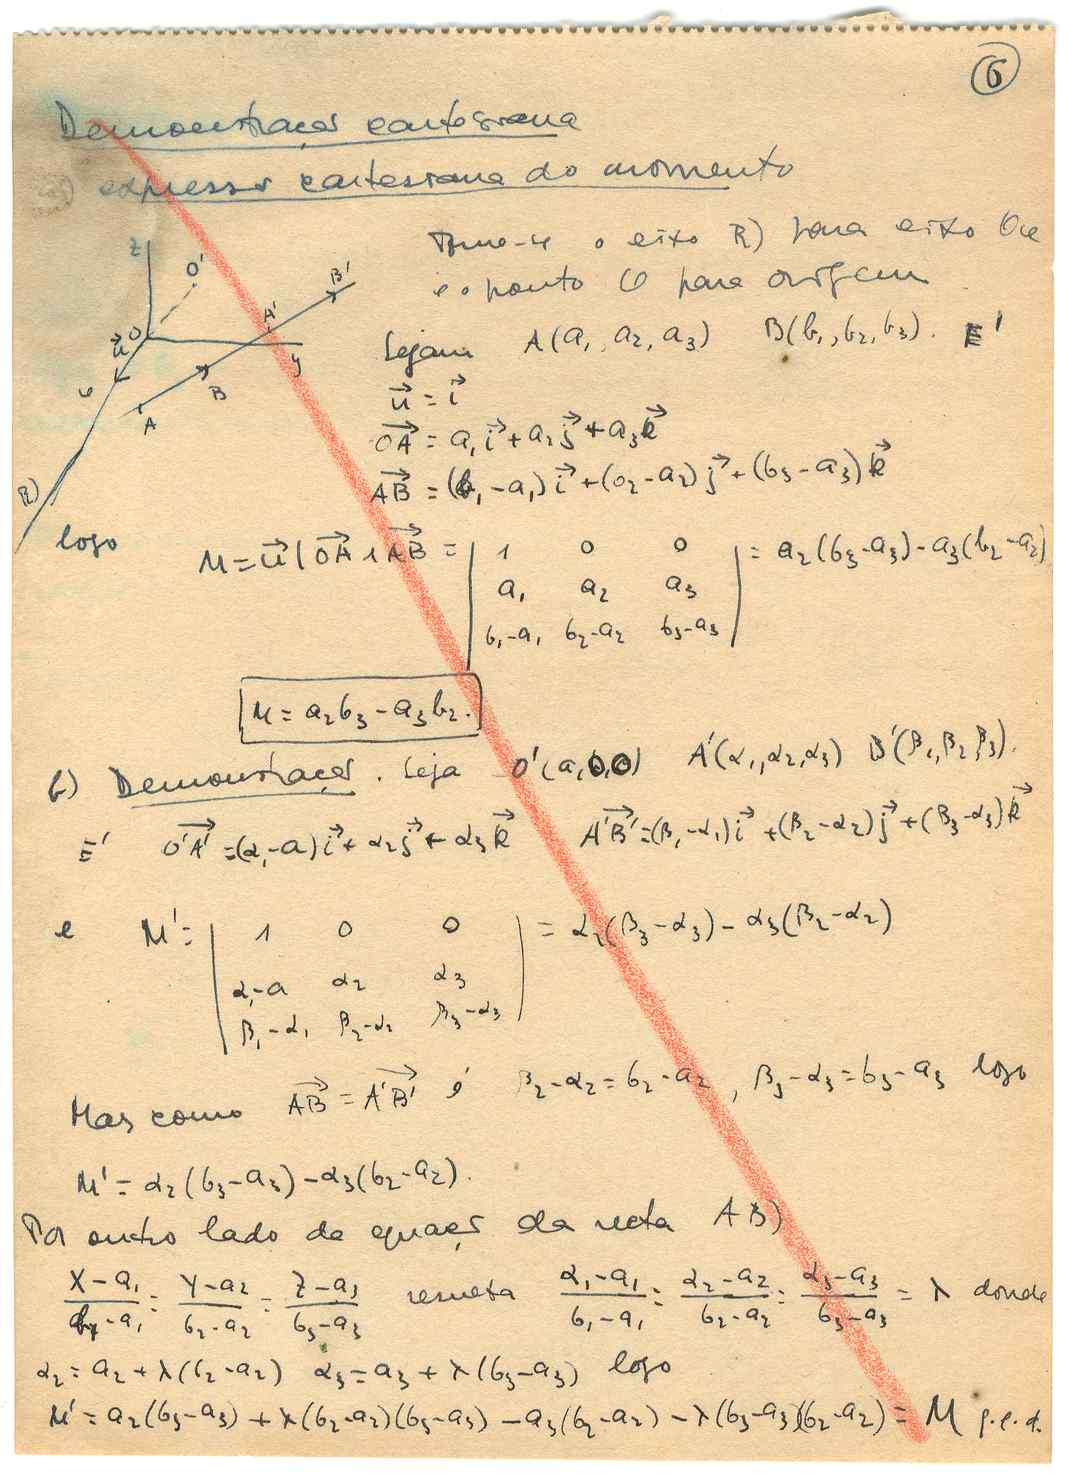 6
Demonstraçaõ cartesiana
a) expressaõ cartesiana do momento
Tome-se o eixo R) para eixo Ox
e o ponto O para origem
Sejam A(a₁, a₂, a₃) B(b₁, b₂, b₃). E'
z O' B' A' O u⃗ y B A R)
u⃗ = i⃗
OA⃗ = a₁i⃗ + a₂j⃗ + a₃k⃗
AB⃗ = (b₁-a₁)i⃗ + (b₂-a₂)j⃗ + (b₃-a₃)k⃗
logo
M = u⃗ | OA⃗ ∧ AB⃗ = | 1 0 0 | = a₂(b₃-a₃) - a₃(b₂-a₂)
a₁ a₂ a₃
b₁-a₁ b₂-a₂ b₃-a₃
M = a₂b₃ - a₃b₂.
b) Demonstraçaõ. Seja O'(a,0,0) A'(α₁,α₂,α₃) B'(β₁,β₂,β₃).
E' O'A'⃗ = (α₁-a)i⃗ + α₂j⃗ + α₃k⃗ A'B'⃗ = (β₁-α₁)i⃗ + (β₂-α₂)j⃗ + (β₃-α₃)k⃗
e M' = | 1 0 0 | = α₂(β₃-α₃) - α₃(β₂-α₂)
α₁-a α₂ α₃
β₁-α₁ β₂-α₂ β₃-α₃
Mas como AB⃗ = A'B'⃗ é β₂-α₂ = b₂-a₂, β₃-α₃ = b₃-a₃ logo
M' = α₂(b₃-a₃) - α₃(b₂-a₂).
Por outro lado da equaçaõ da reta AB)
X-a₁/b₁-a₁ = Y-a₂/b₂-a₂ = Z-a₃/b₃-a₃ resulta α₁-a₁/b₁-a₁ = α₂-a₂/b₂-a₂ = α₃-a₃/b₃-a₃ = λ donde
α₂ = a₂ + λ(b₂-a₂) α₃ = a₃ + λ(b₃-a₃) logo
M' = a₂(b₃-a₃) + λ(b₂-a₂)(b₃-a₃) - a₃(b₂-a₂) - λ(b₃-a₃)(b₂-a₂) = M q.e.d.